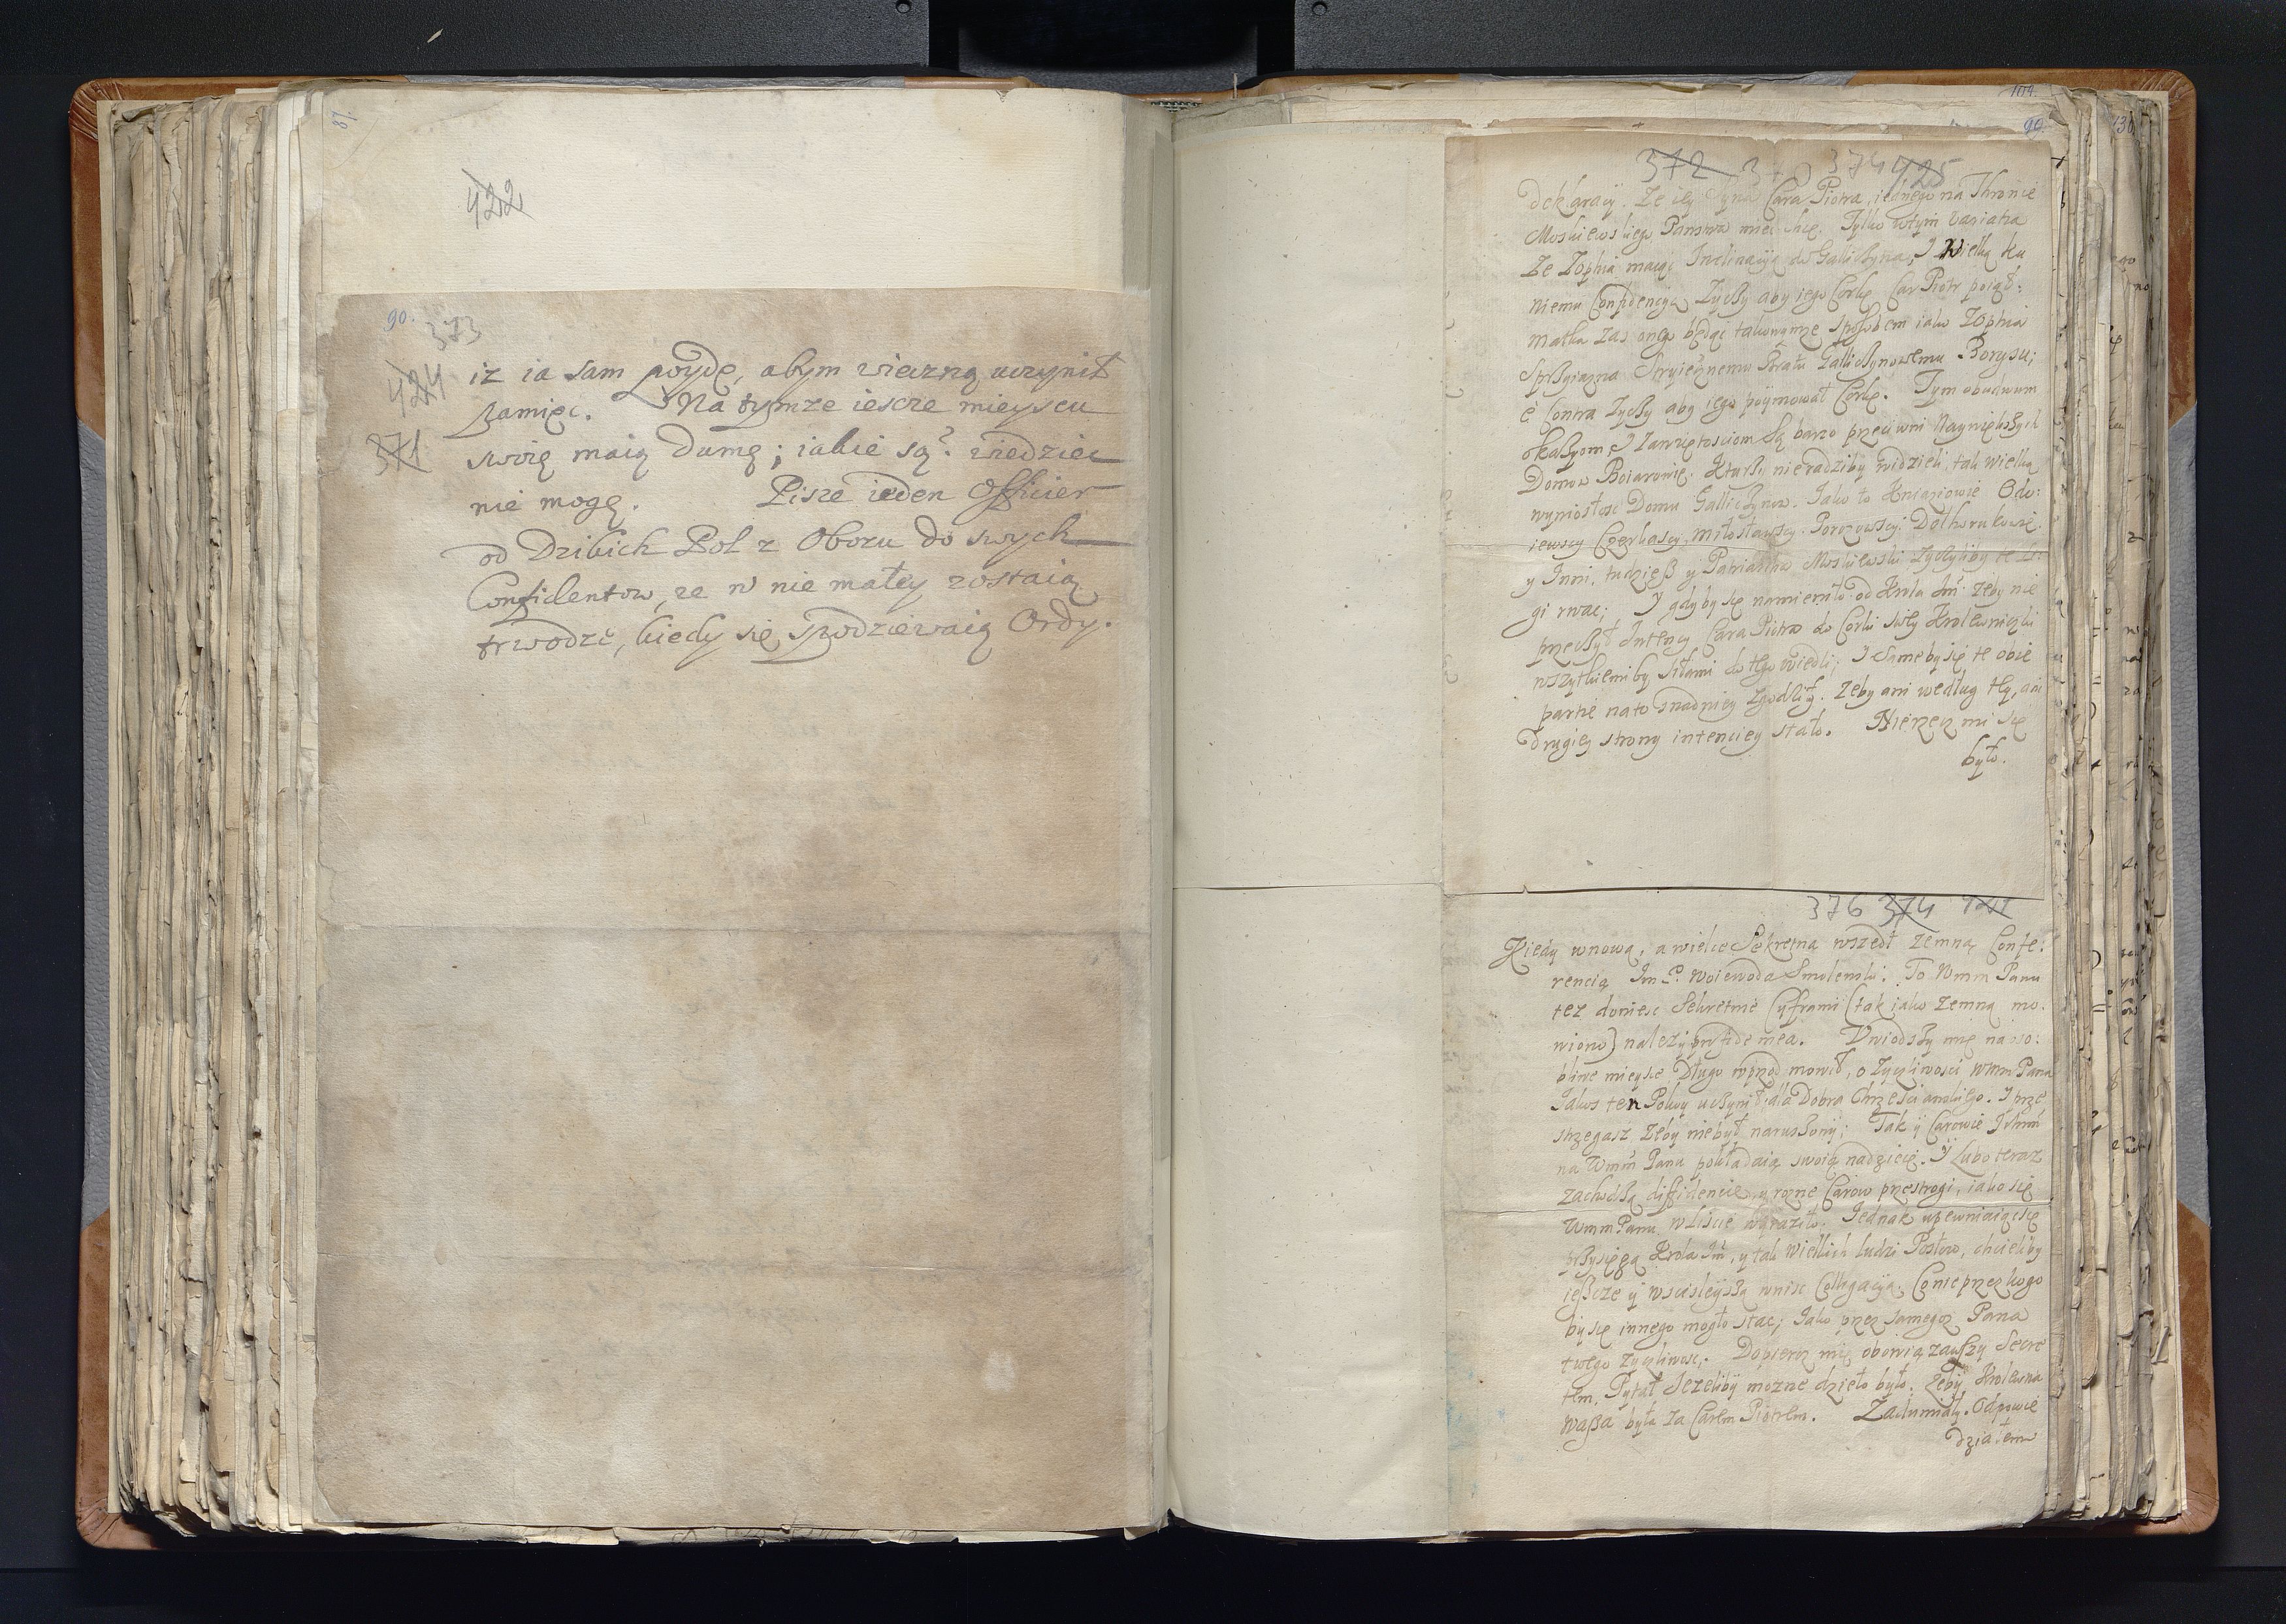 18
422
90.
373
424
371
iz ia sam poydę, abym wieczną uczynił
pamięc. Na tymze iescze mieyscu
swoię maią Dumę; iakie są? wiedziec
nie mogę. Pisze ieden Officier
od Dzikich Pol z Obozu do swych
Confidentow, ze w nie małey zostaią
trwodze, kiedy się spodziewaią Ordy.
104.
90.
130
372 373 374 425
deklaracij. Ze iey Syna Cara Piotra, iednego na Thronie
Moskiewskiego Panstwa miec chce. Tylko wtym variatia
Ze Zophia maiąc Inclinacyą do Galliczyna, I Wielką ku
niemu Confidencyą Zyczy aby iego Corkę Car Piotr poiął:
Matka zas onego będąc takowymze sposobem iako Zophia
Sprzyiazna Stryiecznemu Bratu Galliczynowemu Borysu;
è Contra Zyczy aby iego poymował Corkę. Tym obudwum
okazyom y Zawziętosciom są barzo przeciwni Naywiększych
Domow Boiarowie. Ktorzy nieradziby widzieli, tak wielką
wyniosłosc Domu Galliczynow. Iako to Kniaziowie Odo:
iewscy Czerkascy, Miłosławscy. Dolhorukowie.
y Inni, tudziesz y Patriarcha Moskiewski zyczyliby te
gi rwac; Y gdyby się namieniło od Krola Jm̃. zeby nie
przeczył Intency Cara Piotra do Corki swey Krolewniczki
wszytkiemiby siłami do tego wiedli; I Sameby się te obie
partie nato snadniey Zgodziły. Zeby ani według tey, ani
drugiey strony intenciey stało. Nie rzecz mi się
było.
376 374
Kiedy wnową, a wielce Sekretną wszedł Zemną Confe:
rencią Im P. Woiewoda Smolenski. To Wmm Panu
tez doniesc Sekretnie Cyframi (tak iako Zemną mo:
wiono) nalezy pro fide mea. Uwiodszy mię na oso:
bliwe mieysce Długo wprzod mowił, o Zyczliwosci Wmm Pana
Iakos ten Pokoy uczynił, dla Dobra Chrzescianskiego. Y prze
strzegasz Zeby niebył naruszony; Tak y Carowie Ichmc
na Wmm Panu pokładaią swoię nadzieię. Y Lubo teraz
zachodzą diffidencie, y rozne Carow przestrogi, iako się
Wmm Panu w Liscie wyraziło. Iednak upewniaiąc się
przysięgą Krola Jm̃, y tak Wielkich ludzi Posłow, chcieliby
ieszcze y wscisleyszą wnisc Colligacyą. Co nie przez kogo
by się innego mogło stac; Iako przez samegoz Pana
twego Zyczliwosc. Dopieroz mię obowiązawszy Secre
tem, Pytał Iezeliby mozne dzieło było. Zeby Krolewna
Wasza była za Carem Piotrem. Zadumiały. Odpowie
działem